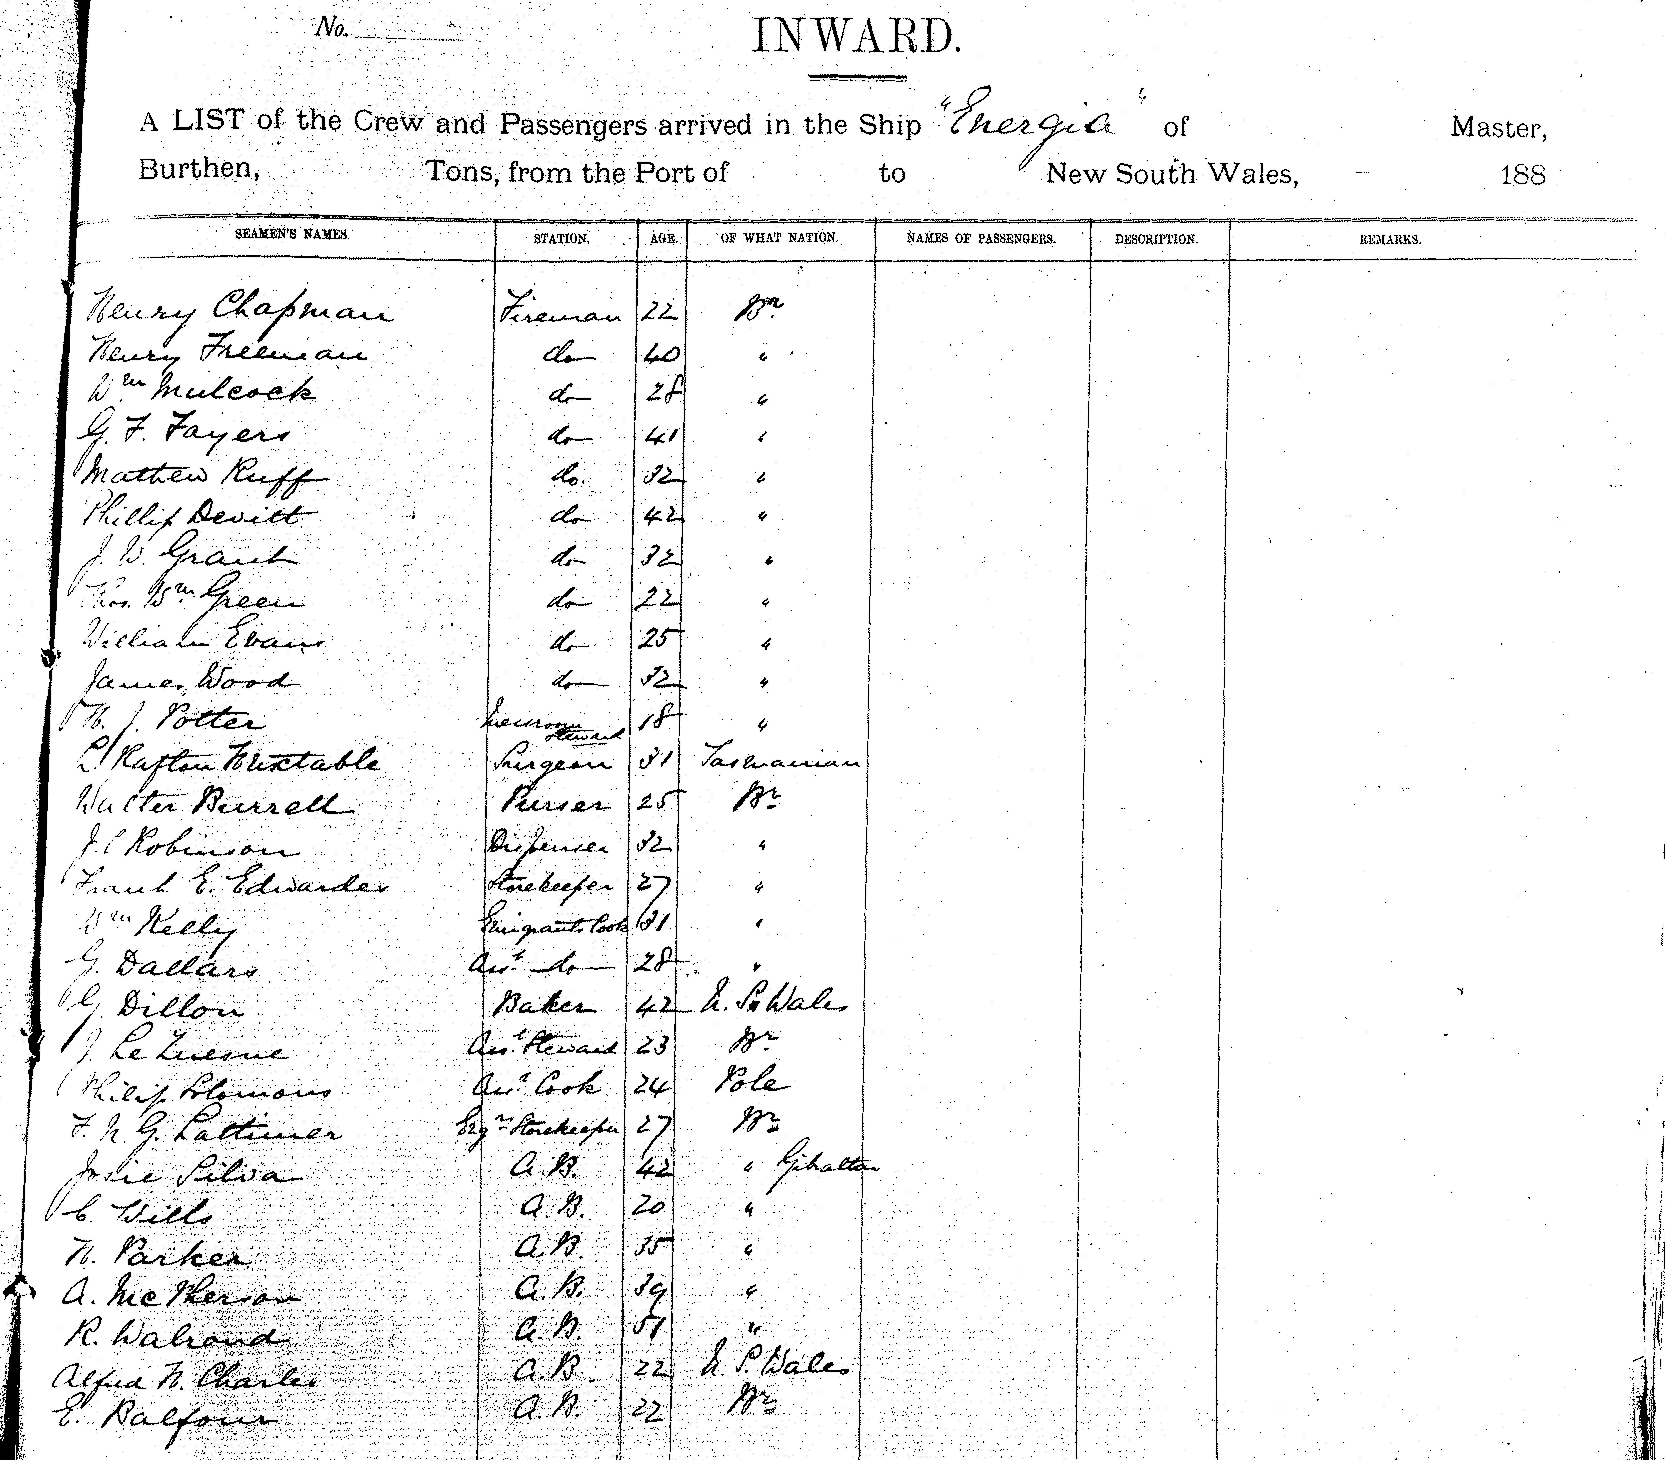 No.
INWARD.
A LIST of the Crew and Passengers arrived in the Ship "Energia" of Master,
Burthen, Tons, from the Port of to New South Wales, 188
SEAMEN'S NAMES. STATION. AGE. OF WHAT NATION. NAMES OF PASSENGERS. DESCRIPTION. REMARKS.
Henry Chapman Fireman 22 Br.
Henry Freeman do 40 "
Wm Mulcock do 28 "
G. F. Fayers do 41 "
Mathew Ruff do. 32 "
Phillip Devitt do 42 "
J. W. Grant do 32 "
Thos. Wm Green do 22 "
William Evans do 25 "
James Wood do 32 "
H. J. Potter Steward 18 "
Rafton Huxtable Surgeon 31 Tasmanian
Walter Burrell Purser 25 Br.
J. C Robinson Dispenser 32 "
Frank E. Edwardes Storekeeper 27 "
Wm Kelly Emigrants Cook 31 "
G. Dallars Asst. do 28 "
G. Dillon Baker 42 N. S. Wales
J. Le Quesne Asst. Steward 23 Br.
Philip Solomons Asst. Cook 24 Pole
F. N. G. Lattimer Storekeeper 27 Br.
Josie Silva A. B. 42 " Gibraltar
C. Wills A. B. 20 "
H. Parker A. B. 35 "
A. McPherson A. B. 39 "
R. Walrond A. B. 51 "
Alfred H. Charles A. B. 22 N. S. Wales
E. Balfour A. B. 22 Br.